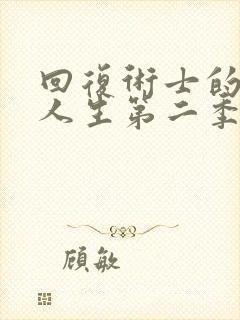 回復術士的
人生第二季
顧敏